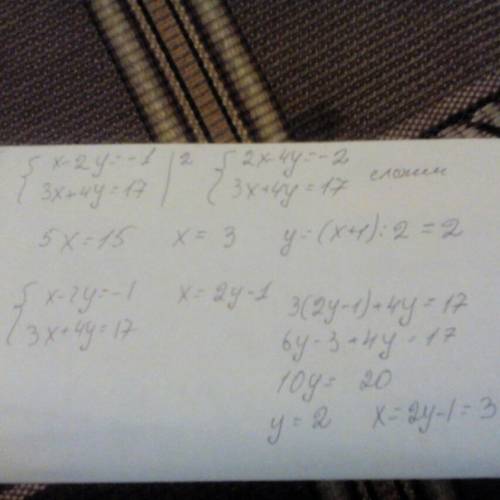 { x-2y=-1 | 2 { 2x-4y=-2
{ 3x+4y=17 | { 3x+4y=17 сложим
5x=15 x=3 y=(x+1):2=2
{ x-2y=-1 x=2y-1
{ 3x+4y=17 3(2y-1)+4y=17
6y-3+4y=17
10y= 20
y=2 x=2y-1=3